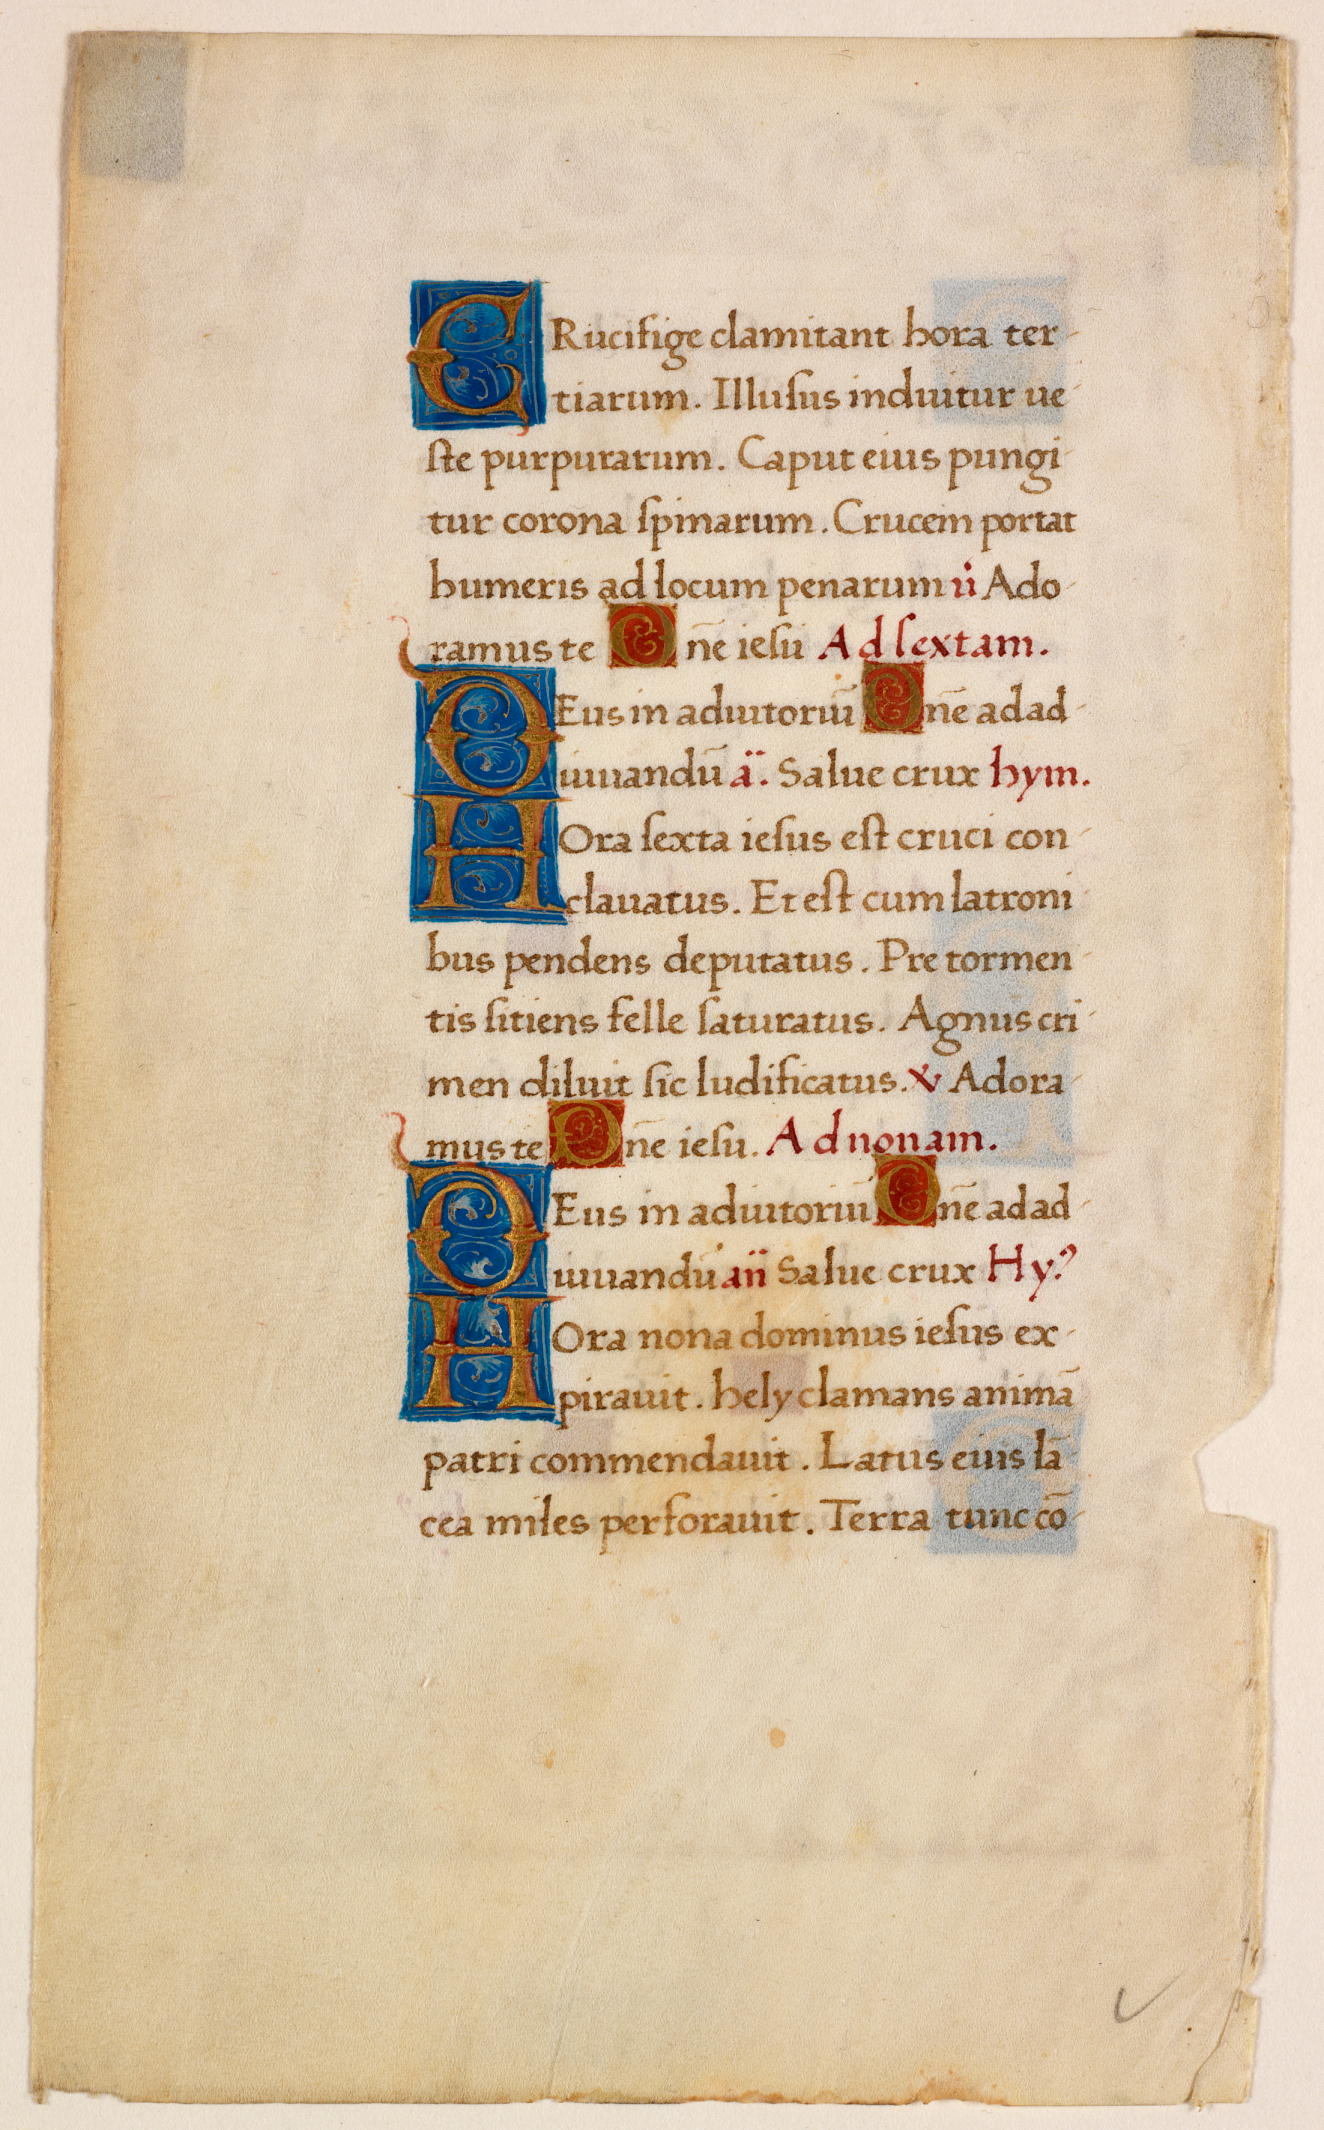 CRucifige clamitant hora ter
tiarum. Illuſus induitur ue
ſte purpurarum. Caput eius pungi
tur corona ſpinarum. Crucem portat
humeris ad locum penarum v̇ Ado
ramus te Dñe ieſu Ad ſextam.
DEus in adiutoriū Dñe ad ad
iuuandū ā. Salue crux hym.
HOra ſexta ieſus eſt cruci con
clauatus. Et eſt cum latroni
bus pendens deputatus. Pre tormen
tis ſitiens felle ſaturatus. Agnus cri
men diluit ſic ludificatus. v Adora
mus te Dñe ieſu. Ad nonam.
DEus in adiutoriū Dñe ad ad
iuuandū añ Salue crux Hy.
HOra nona dominus ieſus ex
pirauit. hely clamans animā
patri commendauit. Latus eius lā
cea miles perforauit. Terra tunc cō